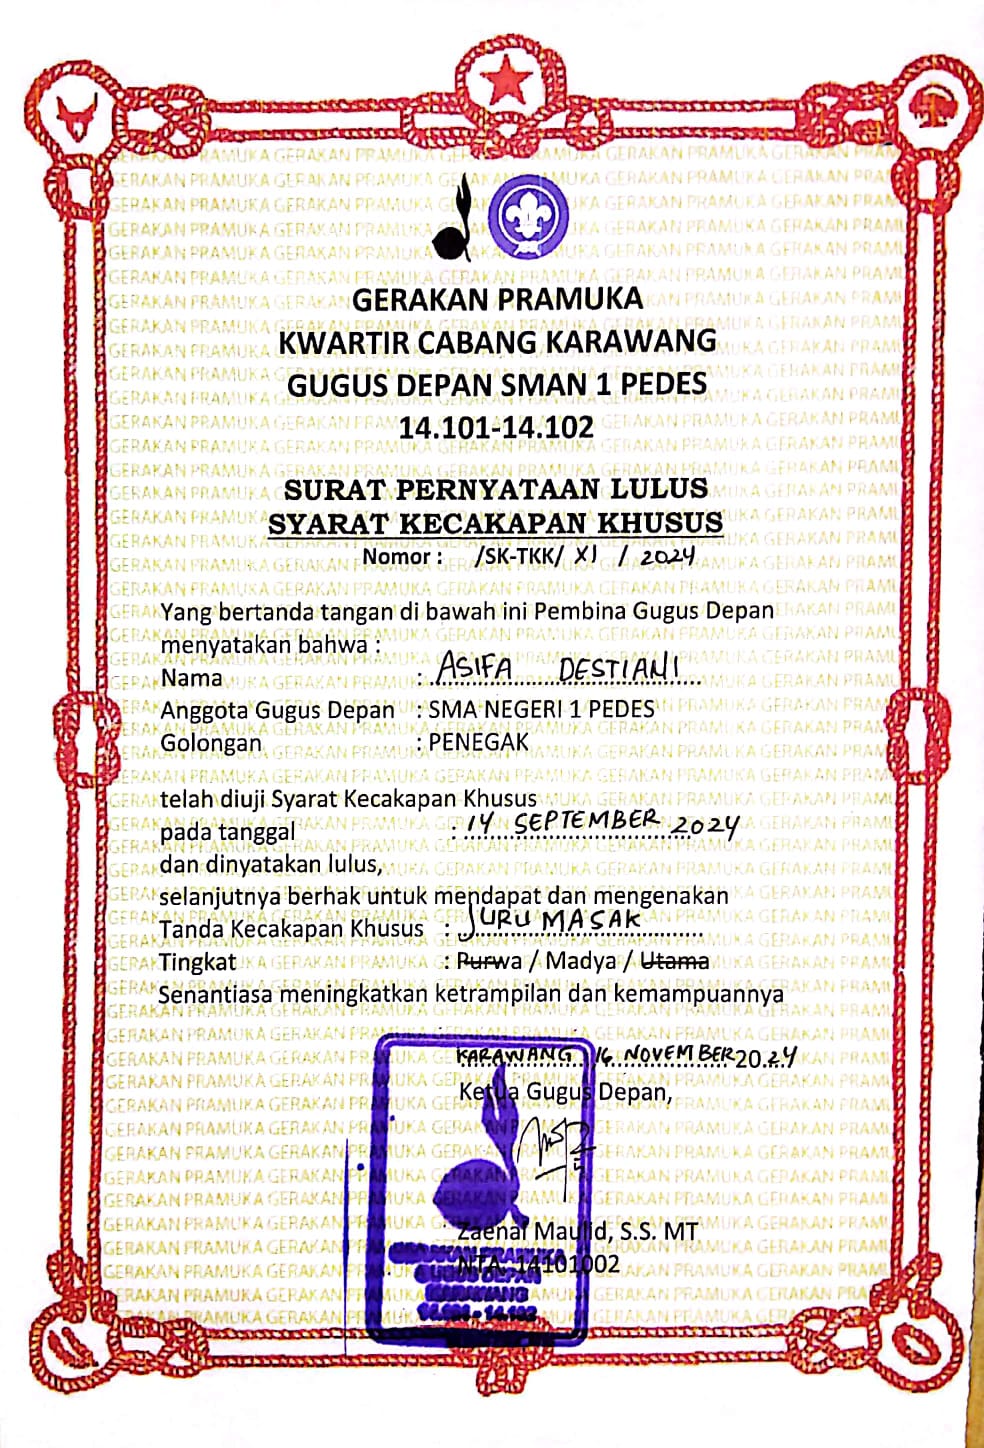 GERAKAN PRAMUKA
KWARTIR CABANG KARAWANG
GUGUS DEPAN SMAN 1 PEDES
14.101-14.102
SURAT PERNYATAAN LULUS
SYARAT KECAKAPAN KHUSUS
Nomor : /SK-TKK/ XI / 2024
Yang bertanda tangan di bawah ini Pembina Gugus Depan
menyatakan bahwa :
Nama : ASIFA DESTIANI
Anggota Gugus Depan : SMA NEGERI 1 PEDES
Golongan : PENEGAK
telah diuji Syarat Kecakapan Khusus
pada tanggal : 14 SEPTEMBER 2024
dan dinyatakan lulus,
selanjutnya berhak untuk mendapat dan mengenakan
Tanda Kecakapan Khusus : JURU MASAK
Tingkat : Purwa / Madya / Utama
Senantiasa meningkatkan ketrampilan dan kemampuannya
KARAWANG, 16 NOVEMBER 2024
Ketua Gugus Depan,
Zaenal Maulid, S.S. MT
NTA. 14101002
GERAKAN PRAMUKA
GUGUS DEPAN
KARAWANG
14.101 - 14.102